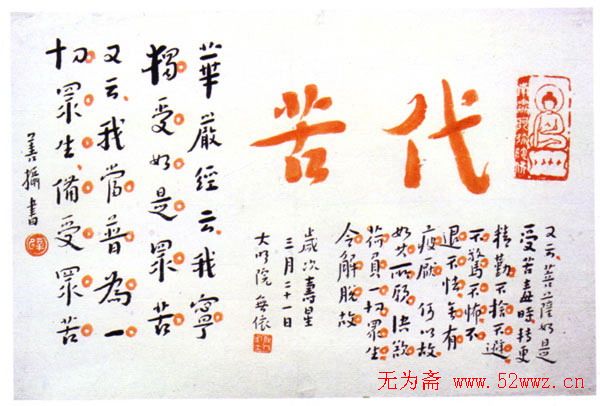 代苦
華嚴經云我寧
獨受如是眾苦
又云我當普為一
切眾生備受眾苦
善攝書
又云菩薩如是
受苦毒時轉更
精勤不捨不避
不驚不怖不
退不怯無有
疲厭何以故
如其所願決欲
荷負一切眾生
令解脫故
歲次壽星
三月二十一日
大明院無依
无为斋 www.52wwz.cn